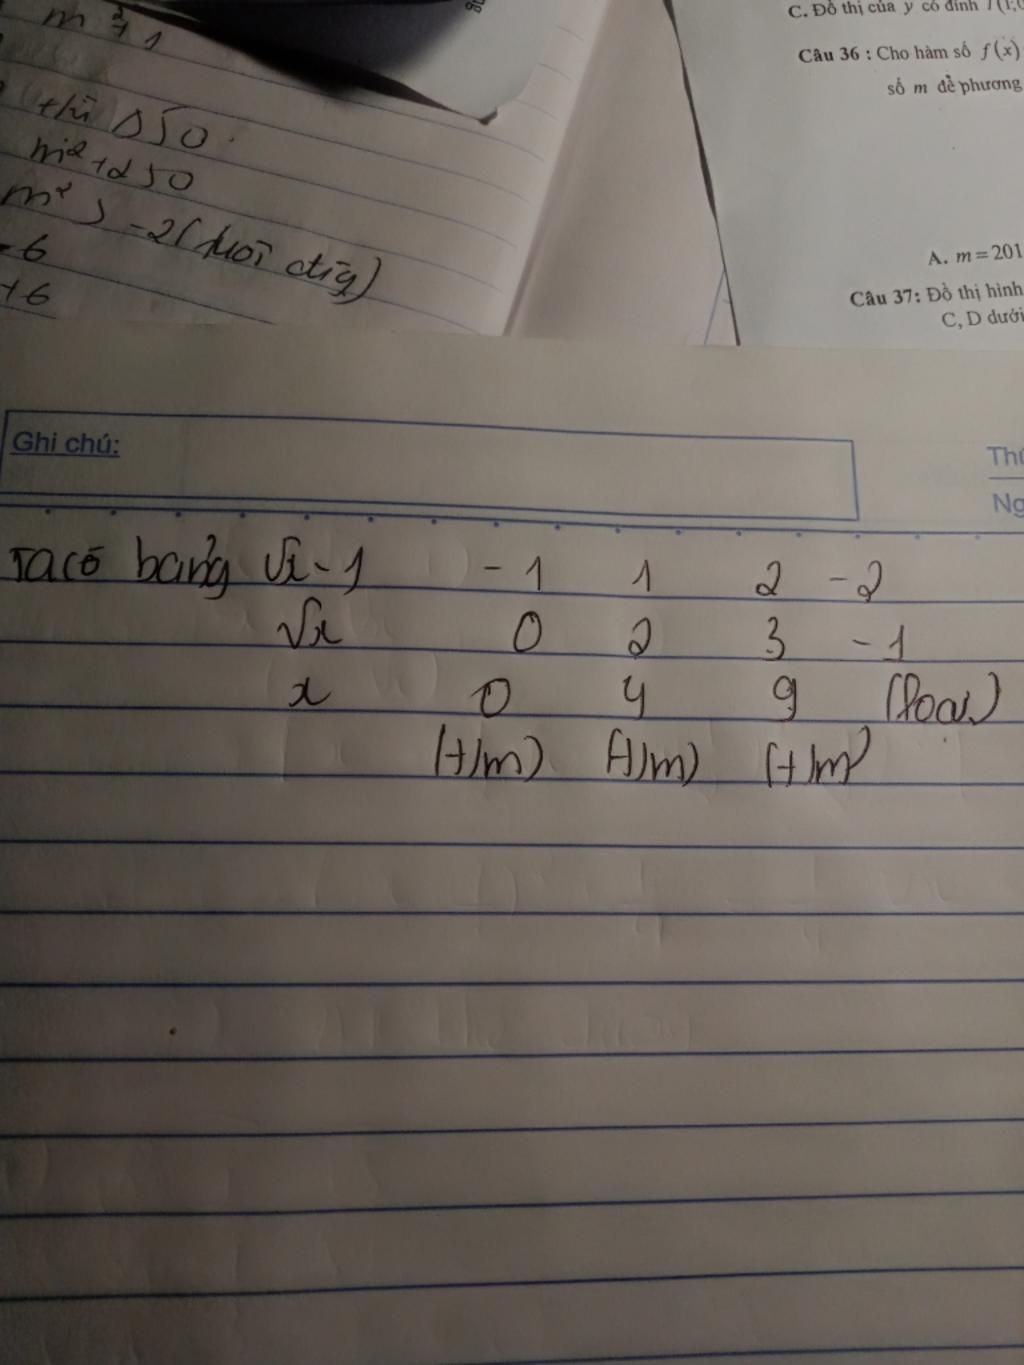 m² ≠ 1
thì Δ > 0
m² + 2 > 0
m² > -2 (luôn đúg)
-6
+6
C. Đồ thị của y có đỉnh I(1;
Câu 36 : Cho hàm số f(x)
số m để phương
A. m = 201
Câu 37: Đồ thị hình
C, D dưới
Ghi chú:
Thứ
Ng
Ta có bảng √x - 1 -1 1 2 -2
√x 0 2 3 -1
x 0 4 9 (loại)
(t/m) (t/m) (t/m)